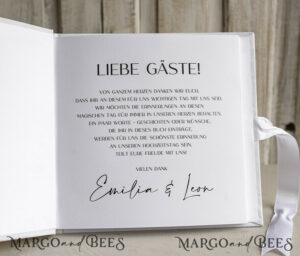 LIEBE GÄSTE!
VON GANZEM HERZEN DANKEN WIR EUCH,
DASS IHR AN DIESEM FÜR UNS WICHTIGEN TAG MIT UNS SEID.
WIR MÖCHTEN DIE ERINNERUNGEN AN DIESEN
MAGISCHEN TAG FÜR IMMER IN UNSEREN HERZEN BEHALTEN.
EIN PAAR WORTE - GESCHICHTEN ODER WÜNSCHE,
DIE IHR IN DIESES BUCH EINTRAGT,
WERDEN FÜR UNS DIE SCHÖNSTE ERINNERUNG
AN UNSEREN HOCHZEITSTAG SEIN.
TEILT EURE FREUDE MIT UNS!
VIELEN DANK
Emilia & Leon
MARGO and BEES
MARGO and BEES